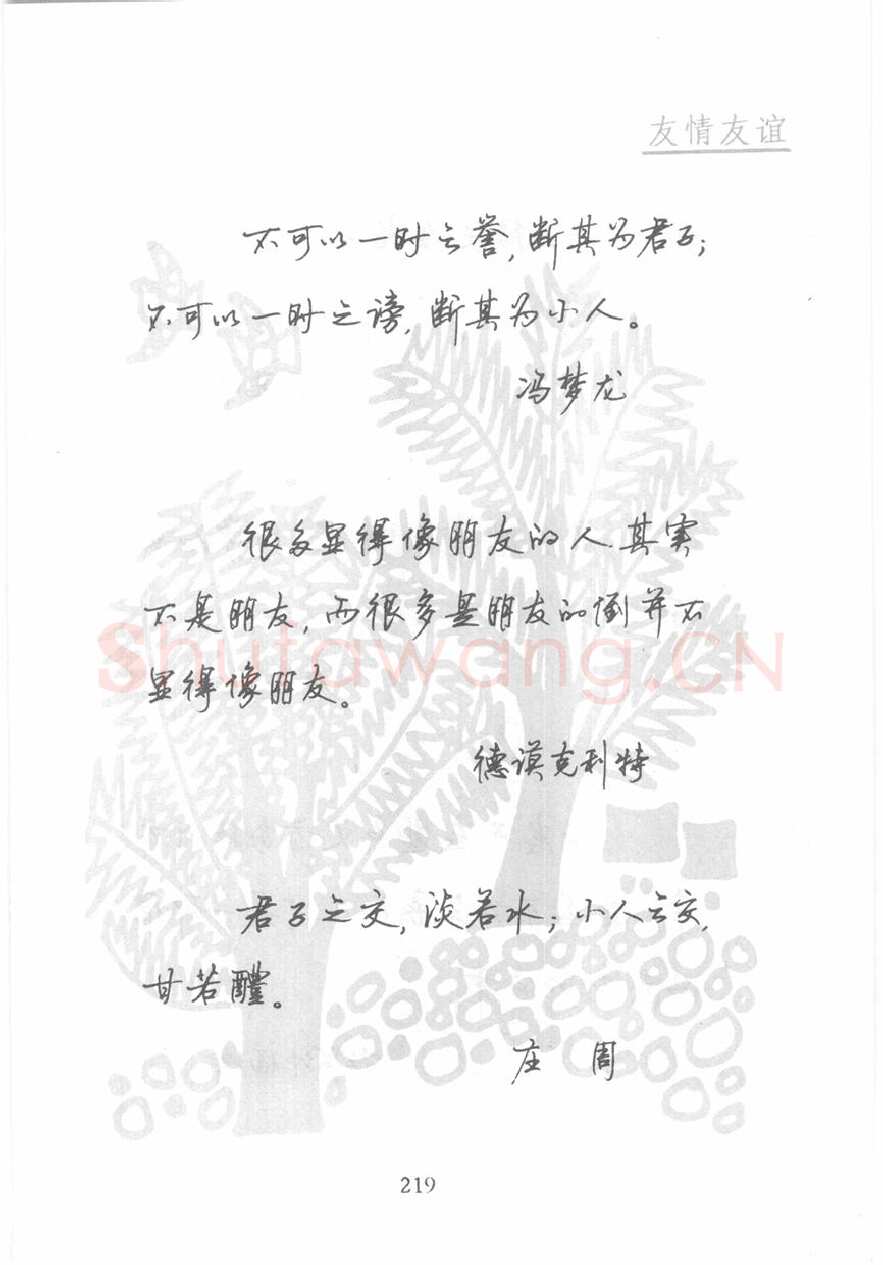 友情友谊
不可以一时之誉,断其为君子;
不可以一时之谤,断其为小人。
冯梦龙
很多显得像朋友的人其实
不是朋友,而很多是朋友的倒并不
显得像朋友。
Shufawang.CN
德谟克利特
君子之交,淡若水;小人之交,
甘若醴。
庄周
219